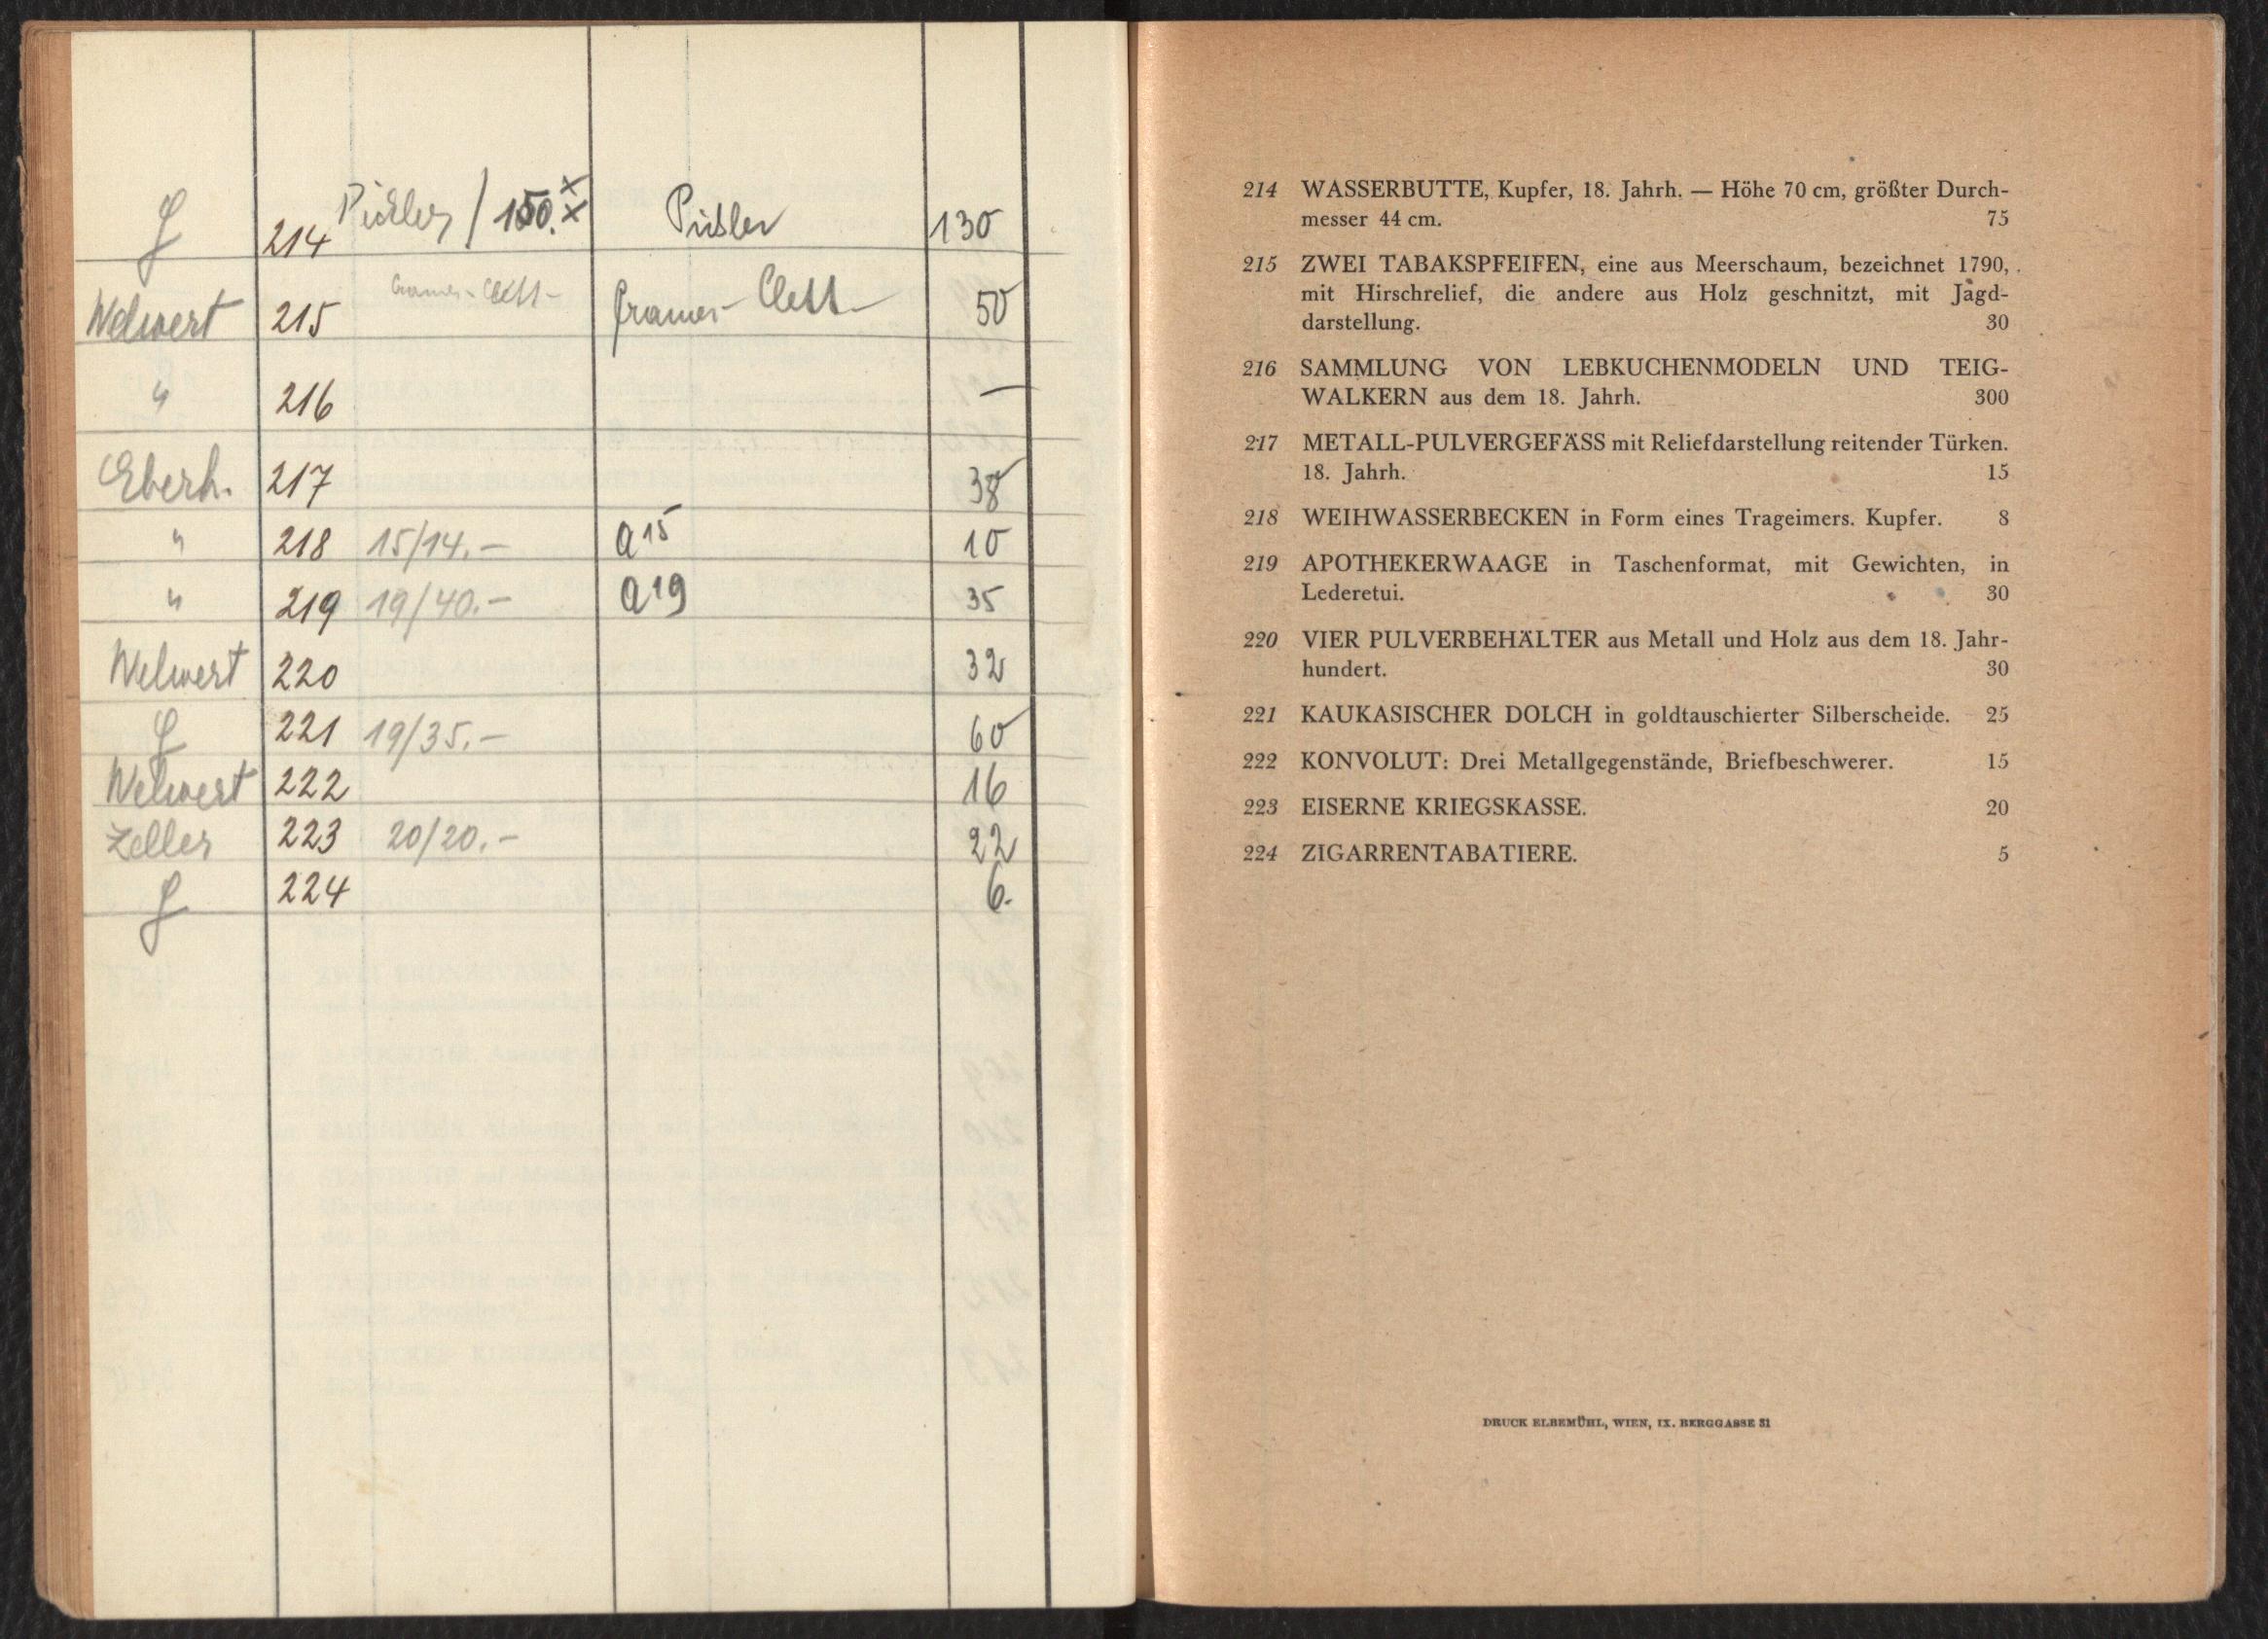 214 Pichler / 150.- 130
Welwert 215 Cramer-Clett Cramer-Clett 50
" 216 —
Eberh. 217 38
" 218 15/14.- a15 10
" 219 19/40.- a19 35
Welwert 220 32
221 19/35.- 60
Welwert 222 16
Zeller 223 20/20.- 22
224 6.-
214 WASSERBUTTE, Kupfer, 18. Jahrh. — Höhe 70 cm, größter Durch-
messer 44 cm. 75
215 ZWEI TABAKSPFEIFEN, eine aus Meerschaum, bezeichnet 1790,
mit Hirschrelief, die andere aus Holz geschnitzt, mit Jagd-
darstellung. 30
216 SAMMLUNG VON LEBKUCHENMODELN UND TEIG-
WALKERN aus dem 18. Jahrh. 300
217 METALL-PULVERGEFÄSS mit Reliefdarstellung reitender Türken.
18. Jahrh. 15
218 WEIHWASSERBECKEN in Form eines Trageimers. Kupfer. 8
219 APOTHEKERWAAGE in Taschenformat, mit Gewichten, in
Lederetui. 30
220 VIER PULVERBEHÄLTER aus Metall und Holz aus dem 18. Jahr-
hundert. 30
221 KAUKASISCHER DOLCH in goldtauschierter Silberscheide. 25
222 KONVOLUT: Drei Metallgegenstände, Briefbeschwerer. 15
223 EISERNE KRIEGSKASSE. 20
224 ZIGARRENTABATIERE. 5
DRUCK ELBEMÜHL, WIEN, IX. BERGGASSE 31